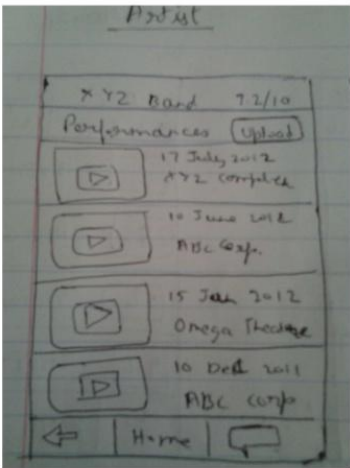 Artist
XYZ Band 7.2/10
Performances Upload
17 July 2012
XYZ Complex
10 June 2012
ABC Corp.
15 Jan 2012
Omega Theatre
10 Dec 2011
ABC Corp
Home